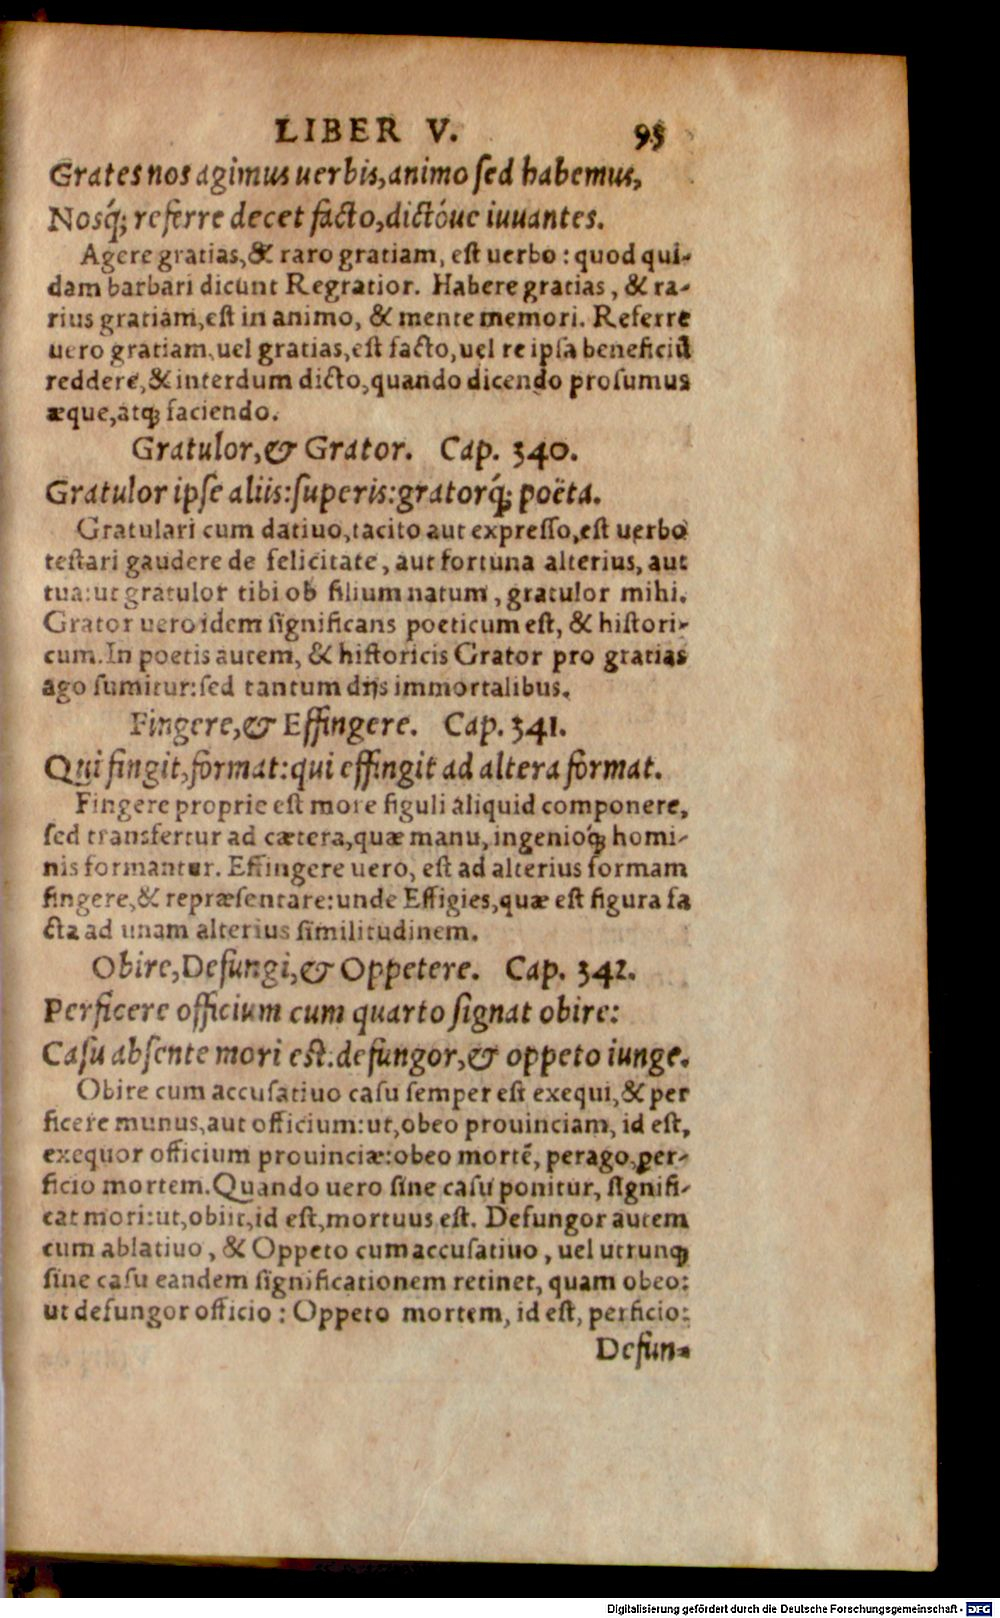 LIBER V. 95
Grates nos agimus uerbis, animo sed habemus,
Nosq́; referre decet facto, dictóue iuuantes.
Agere gratias, & raro gratiam, est uerbo: quod qui-
dam barbari dicunt Regratior. Habere gratias, & ra-
rius gratiam, est in animo, & mente memori. Referre
uero gratiam, uel gratias, est facto, uel re ipsa beneficiū
reddere, & interdum dicto, quando dicendo prosumus
æque, atq; faciendo.
Gratulor, & Grator. Cap. 340.
Gratulor ipse aliis: superis: gratorq́; poëta.
Gratulari cum datiuo, tacito aut expresso, est uerbo
testari gaudere de felicitate, aut fortuna alterius, aut
tua: ut gratulor tibi ob filium natum, gratulor mihi.
Grator uero idem significans poeticum est, & histori-
cum. In poetis autem, & historicis Grator pro gratias
ago sumitur: sed tantum dijs immortalibus.
Fingere, & Effingere. Cap. 341.
Qui fingit, format: qui effingit ad altera format.
Fingere proprie est more figuli aliquid componere,
sed transfertur ad cætera, quæ manu, ingenioq́; homi-
nis formantur. Effingere uero, est ad alterius formam
fingere, & repræsentare: unde Effigies, quæ est figura fa
cta ad unam alterius similitudinem.
Obire, Defungi, & Oppetere. Cap. 342.
Perficere officium cum quarto signat obire:
Casu absente mori est. defungor, & oppeto iunge.
Obire cum accusatiuo casu semper est exequi, & per
ficere munus, aut officium: ut, obeo prouinciam, id est,
exequor officium prouinciæ: obeo mortē, perago, ꝑer-
ficio mortem. Quando uero sine casu ponitur, signifi-
cat mori: ut, obiit, id est, mortuus est. Defungor autem
cum ablatiuo, & Oppeto cum accusatiuo, uel utrunq;
sine casu eandem significationem retinet, quam obeo:
ut defungor officio: Oppeto mortem, id est, perficio:
Defun-
Digitalisierung gefördert durch die Deutsche Forschungsgemeinschaft - DFG